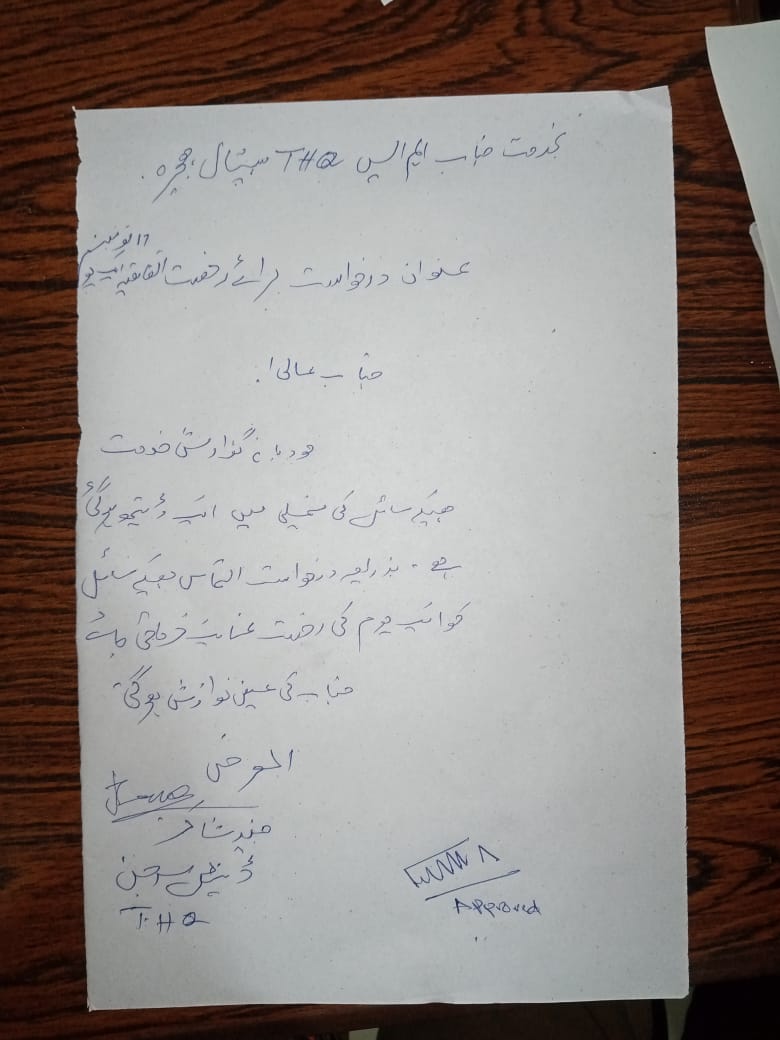 بخدمت جناب ایم ایس THQ ہسپتال ہجیرہ.
17 نومبر
عنوان درخواست برائے رخصت اتفاقیہ ایک یوم
جناب عالی!
مودبانہ گزارش خدمت
ہیکہ سائل کی فیملی میں ایک ڈیتھ ہوگئی
ہے۔ بذریعہ درخواست التماس ہیکہ سائل
کو ایک یوم کی رخصت عنایت فرمائی جائے
جناب کی عین نوازش ہوگی۔
العارض
ڈینٹل سرجن
THQ
Approved